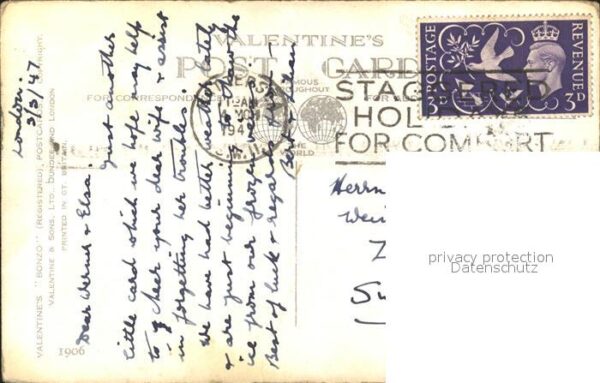 VALENTINE'S
POST CARD
FAMOUS THROUGHOUT THE WORLD
FOR CORRESPONDENCE
POSTAGE
REVENUE
3D
3D
12
194
STAGGERED
HOL
FOR COMFORT
London.
/3/47
Dear Werner & Elsa.
Just another
little card which we hope may help
to cheer your dear wife & assist
in forgetting her troubles.
We have had better weather lately
& are just beginning to thaw the
ice from our frozen
Best of luck & regards from
Bert & Jean
Herrn
privacy protection
Datenschutz
VALENTINE'S "BONZO" (REGISTERED) POSTCARD. COPYRIGHT.
VALENTINE & SONS, LTD. DUNDEE AND LONDON
PRINTED IN GT. BRITAIN.
1906